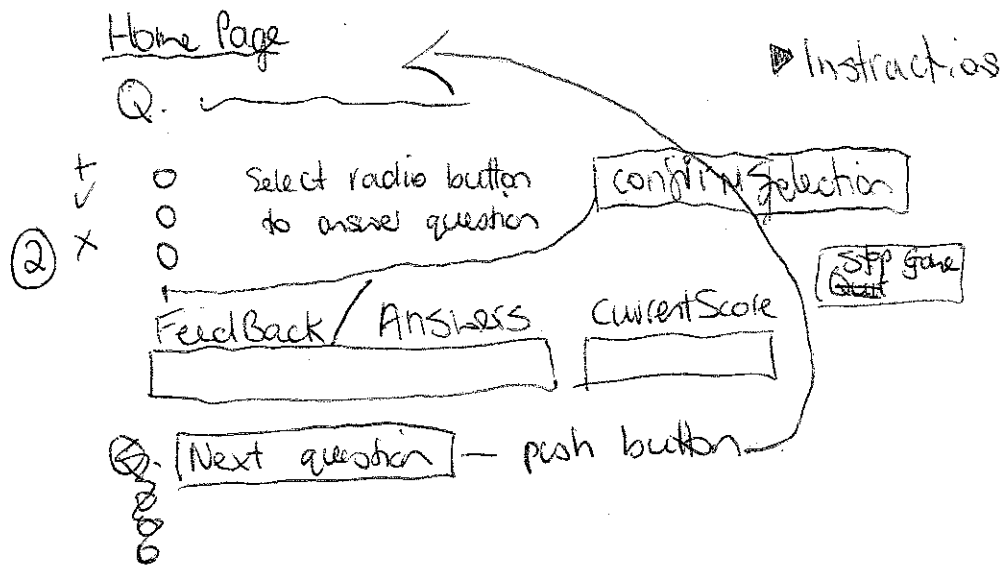 Home Page
Instructios
Q.
+
✓
②
X
Select radio button
to answer question
confirm Selection
Stop Game
Quit
FeedBack / Answers
CurrentScore
Q. Next question — push button